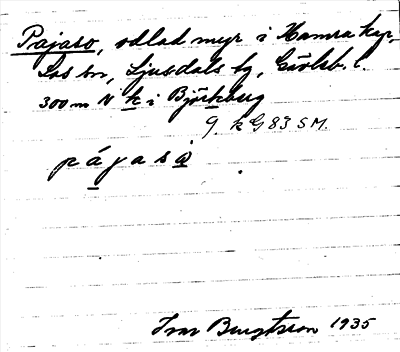 Pajaso, odlad myr i Hamra kyr,
Los sn, Ljusdals tg, Gävleb. l.
300 m N k i Björkberg
9. k G 83 S M.
p á j a s å
Ivar Bengtsson 1935